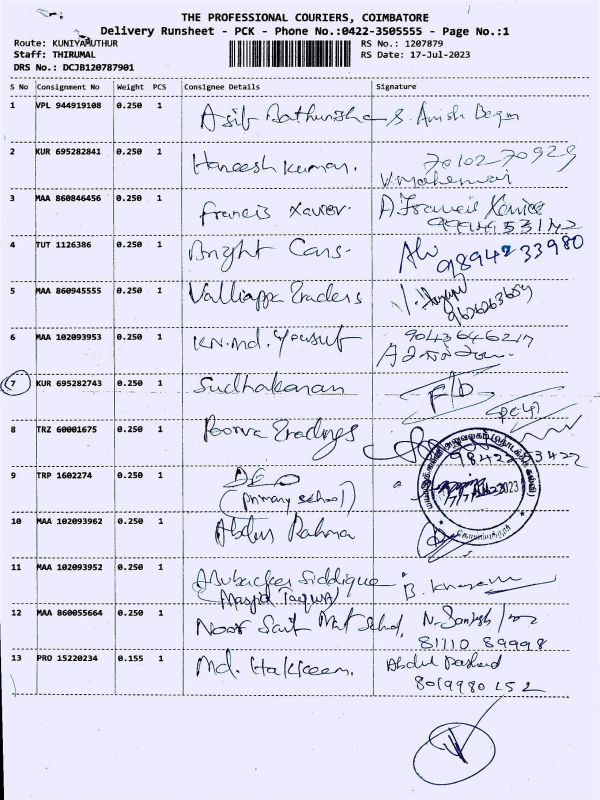 THE PROFESSIONAL COURIERS, COIMBATORE
Delivery Runsheet - PCK - Phone No.:0422-3505555 - Page No.:1
Route: KUNIYAMUTHUR RS No.: 1207879
Staff: THIRUMAL RS Date: 17-Jul-2023
DRS No.: DCJB120787901
S No Consignment No Weight PCS Consignee Details Signature
1 VPL 944919108 0.250 1 Asib Bathunisha S. Anish Begm
2 KUR 695282841 0.250 1 Haneesh Kumar. 70102 70929
V.Maheswari
3 MAA 860846456 0.250 1 Francis Xavier. A.Francis Xavier
4 TUT 1126386 0.250 1 Bright Cars.
9894233980
5 MAA 860945555 0.250 1 Valliappa Traders
9626263659
6 MAA 102093953 0.250 1 K.N.Md. Yousuf 9043646217
7 KUR 695282743 0.250 1 Sudhakaran F/D
8 TRZ 60001675 0.250 1 Poorva Tradings
9842253422
9 TRP 1602274 0.250 1 DEO
(Primary School)
10 MAA 102093962 0.250 1 Abdur Rahma
11 MAA 102093952 0.250 1 Abubacker Siddique B.
12 MAA 860055664 0.250 1 Noor Sait Mat School, N. Santosh
81110 89998
13 PRO 15220234 0.155 1 Md. Hakkeem. Abdul Rashid
8019980152